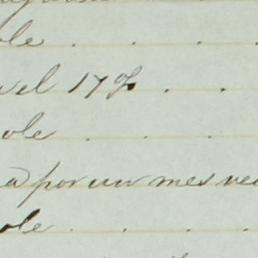 ole . . . .
vel 17% . .
ole . . .
a por un mes ve
ole . . . .